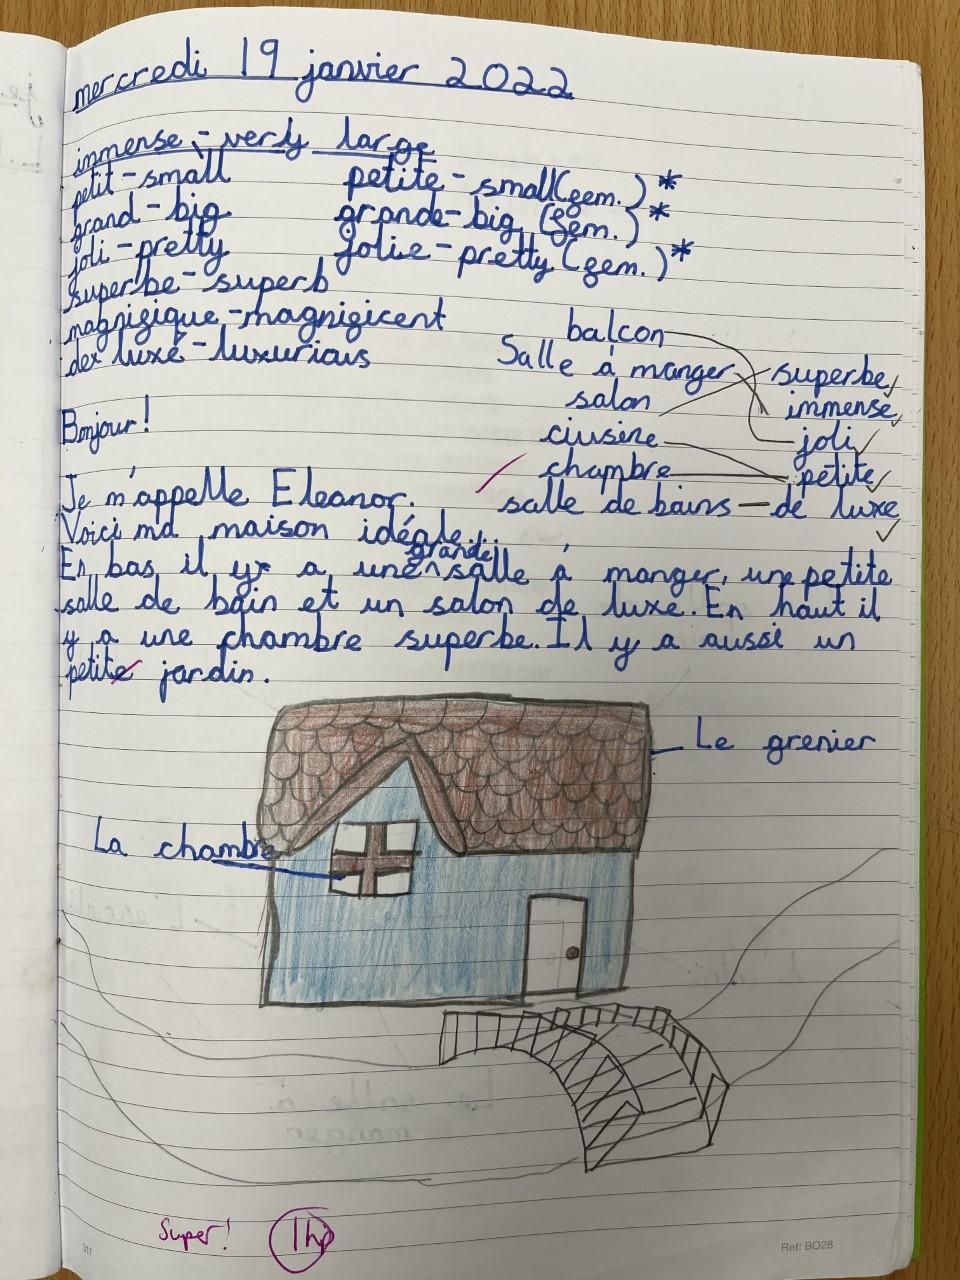 mercredi 19 janvier 2022
immense - very large
petit - small petite - small (fem.) *
grand - big grande - big (fem.) *
joli - pretty jolie - pretty (fem.) *
superbe - superb
magnifique - magnificent
de luxe - luxurious
balcon
Salle á manger superbe ✓
salon immense ✓
ciusine joli ✓
chambre petite ✓
salle de bains de luxe ✓
Bonjour!
Je m'appelle Eleanor.
Voici ma maison idéale.
grande
En bas il y a une salle á manger, une petite
salle de bain et un salon de luxe. En haut il
y a une chambre superbe. Il y a aussi un
petite jardin.
Le grenier
La chambre
Super! 1hp
317
Ref: BO28